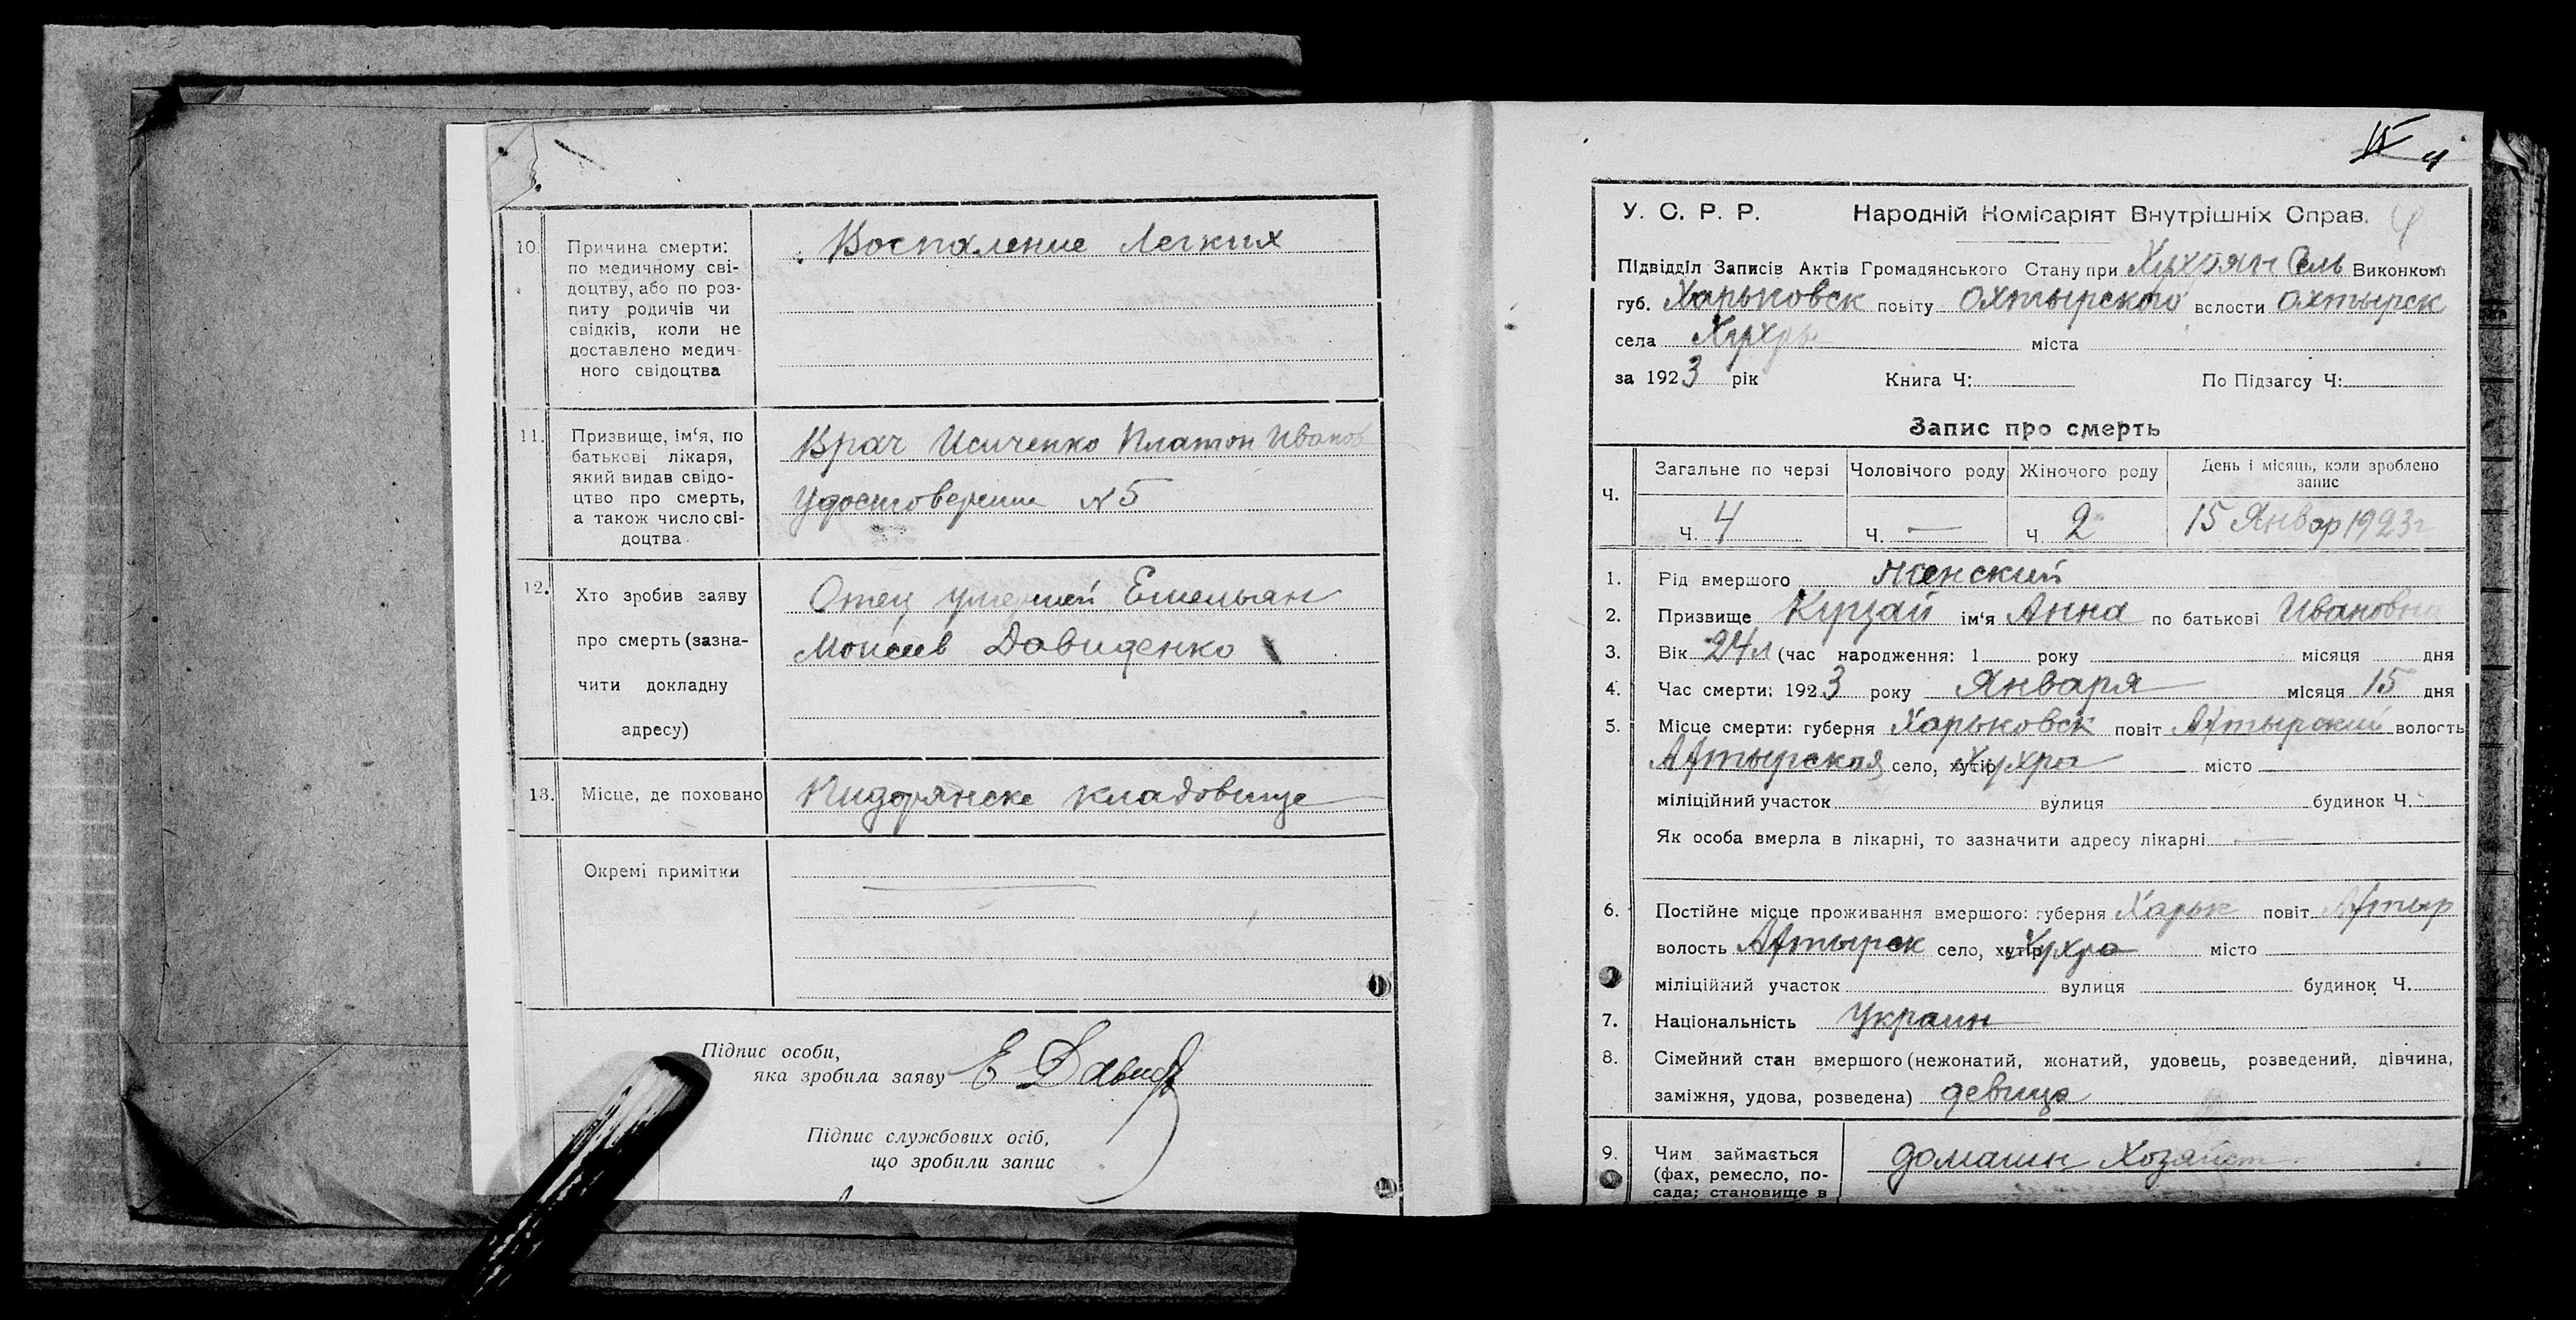 10.
Причина смерти:
по медичному сві-
доцтву, або по роз-
питу родичів чи
свідків, коли не
доставлено медич-
ного свідоцтва
Воспаление Легких
11.
Призвище, ім‘я, по
батькові лікаря,
який видав свідо-
цтво про смерть,
а також число сві-
доцтва
Врач Исиченко Платон Иванов
Удостоверение N 5
12.
Хто зробив заяву
про смерть (зазна-
чити докладну
адресу)
Отец умершей Емельян
Моисеев Давиденко
13.
Місце, де поховано
кладовище
Окремі примітки
Підпис особи,
яка зробила заяву Е Давид
Підпис службових осіб,
що зробили запис
4
У. С. Р. Р. Народній Комісаріят Внутрішніх Справ. 4
Підвідділ Записів Актів Громадянського Стану при Хухрян Сель Виконком
губ. Харьковск повіту Охтырского волости Охтырск
села Хухры міста
за 1923 рік Книга Ч: По Підзагсу Ч:
Запис про смерть
Ч. Загальне по черзі Чоловічого роду Жіночого роду День і місяць, коли зроблено
запис
Ч. 4 Ч. — Ч. 2 15 Январ 1923 г
1. Рід вмершого женский
2. Призвище Курзай ім‘я Анна по батькові Ивановна
3. Вік 24 л (час народження: 1 року місяця дня
4. Час смерти: 1923 року Января місяця 15 дня
5. Місце смерти: губерня Харьковск повіт Ахтырский волость
Ахтырская село, хутір Хухра місто
міліційний участок вулиця будинок Ч.
Як особа вмерла в лікарні, то зазначити адресу лікарні
6. Постійне місце проживання вмершого: губерня Харьк повіт Ахтыр
волость Ахтырск село, хутір Хухра місто
міліційний участок вулиця будинок Ч.
7. Національність Украин
8. Сімейний стан вмершого (нежонатий, жонатий, удовець, розведений, дівчина,
заміжня, удова, розведена) девица
9. Чим займається
(фах, ремесло, по-
сада; становище в
домашн Хозяйст